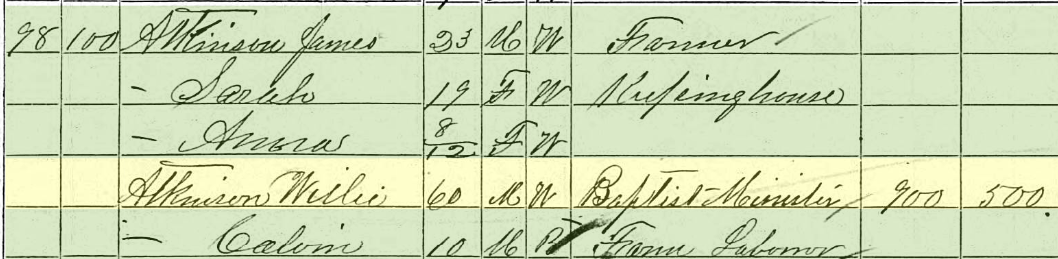 98 100 Atkinson James 23 M W Farmer
— Sarah 19 F W Keepinghouse
— Anna 8/12 F W
Atkinson Willie 60 M W Baptist Minister 900 500
— Calvin 10 M B Farm Laborer